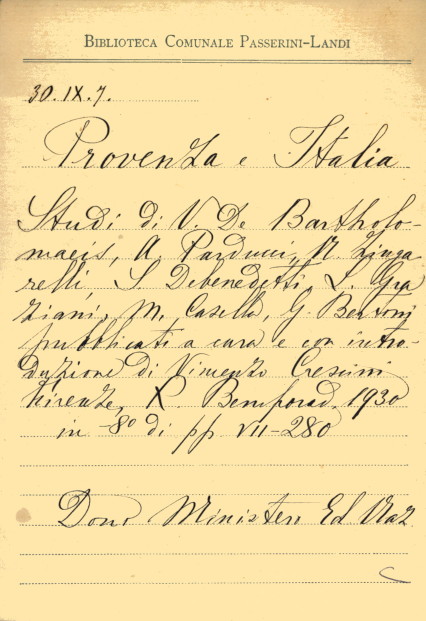 BIBLIOTECA COMUNALE PASSERINI-LANDI
30.IX.7.
Provenza e Italia
Studi di V. De Bartholo-
maeis, A. Parducci, N. Zinga
relli, S. Debenedetti, L. Gra
ziani, M. Casella, G. Bertoni
pubblicati a cura e con intro-
duzione di Vincenzo Crescini
Firenze, R. Bemporad, 1930
in -8º di pp VII-280
Dono Ministero Ed Naz